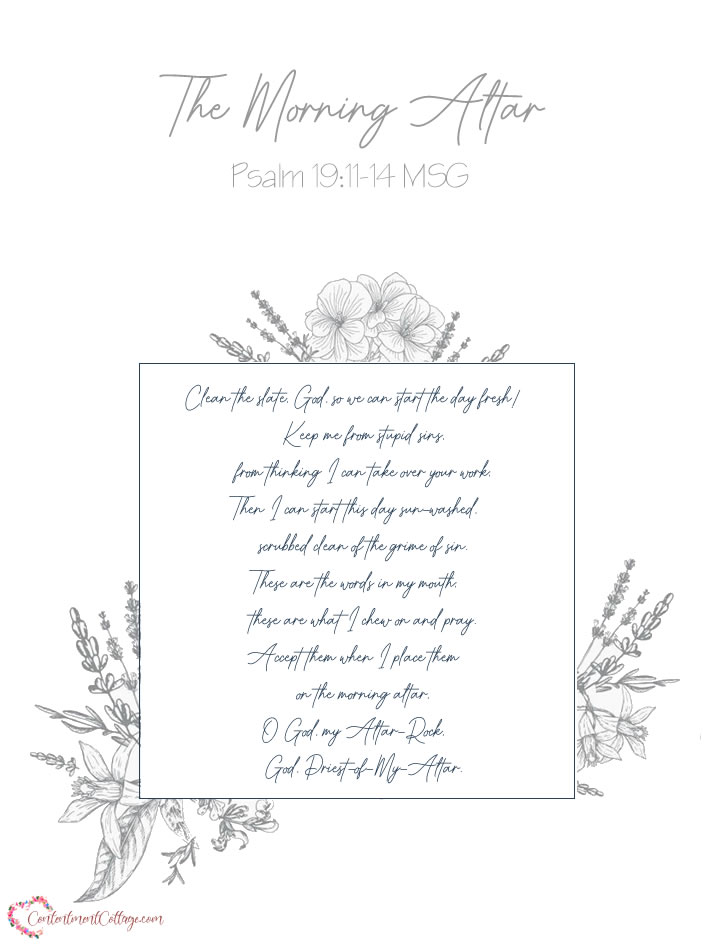 The Morning Altar
Psalm 19:11-14 MSG
Clean the slate, God, so we can start the day fresh!
Keep me from stupid sins,
from thinking I can take over your work,
Then I can start this day sun-washed,
scrubbed clean of the grime of sin.
These are the words in my mouth,
these are what I chew on and pray.
Accept them when I place them
on the morning altar,
O God, my Altar-Rock,
God, Priest-of-My-Altar.
ContentmentCottage.com